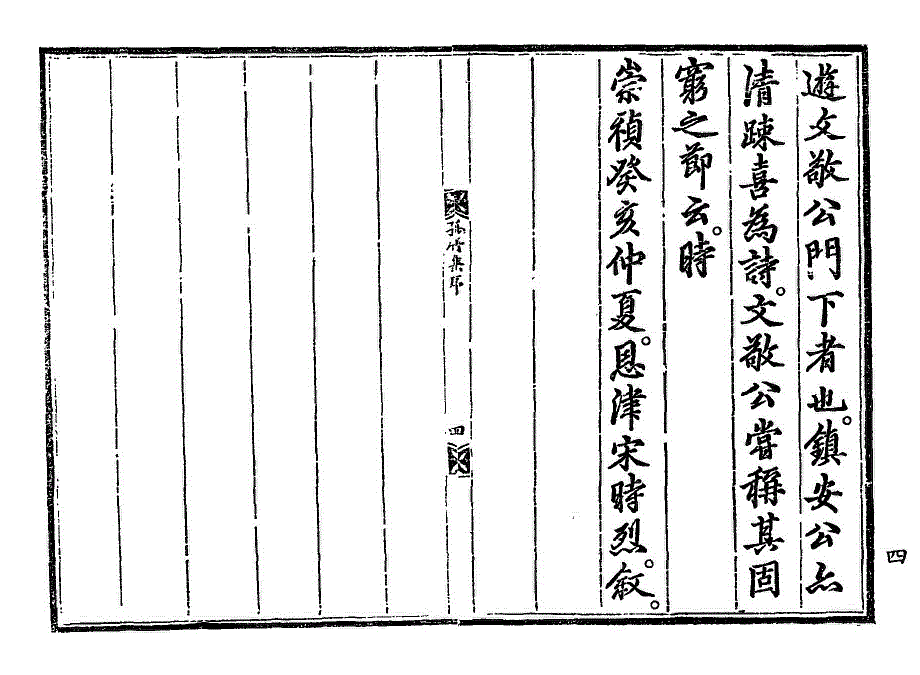 遊文敬公門下者也。鎮安公亦
清踈喜為詩。文敬公甞稱其固
窮之節云。時
崇禎癸亥仲夏。恩津宋時烈。叙。
孤竹集序
四
四